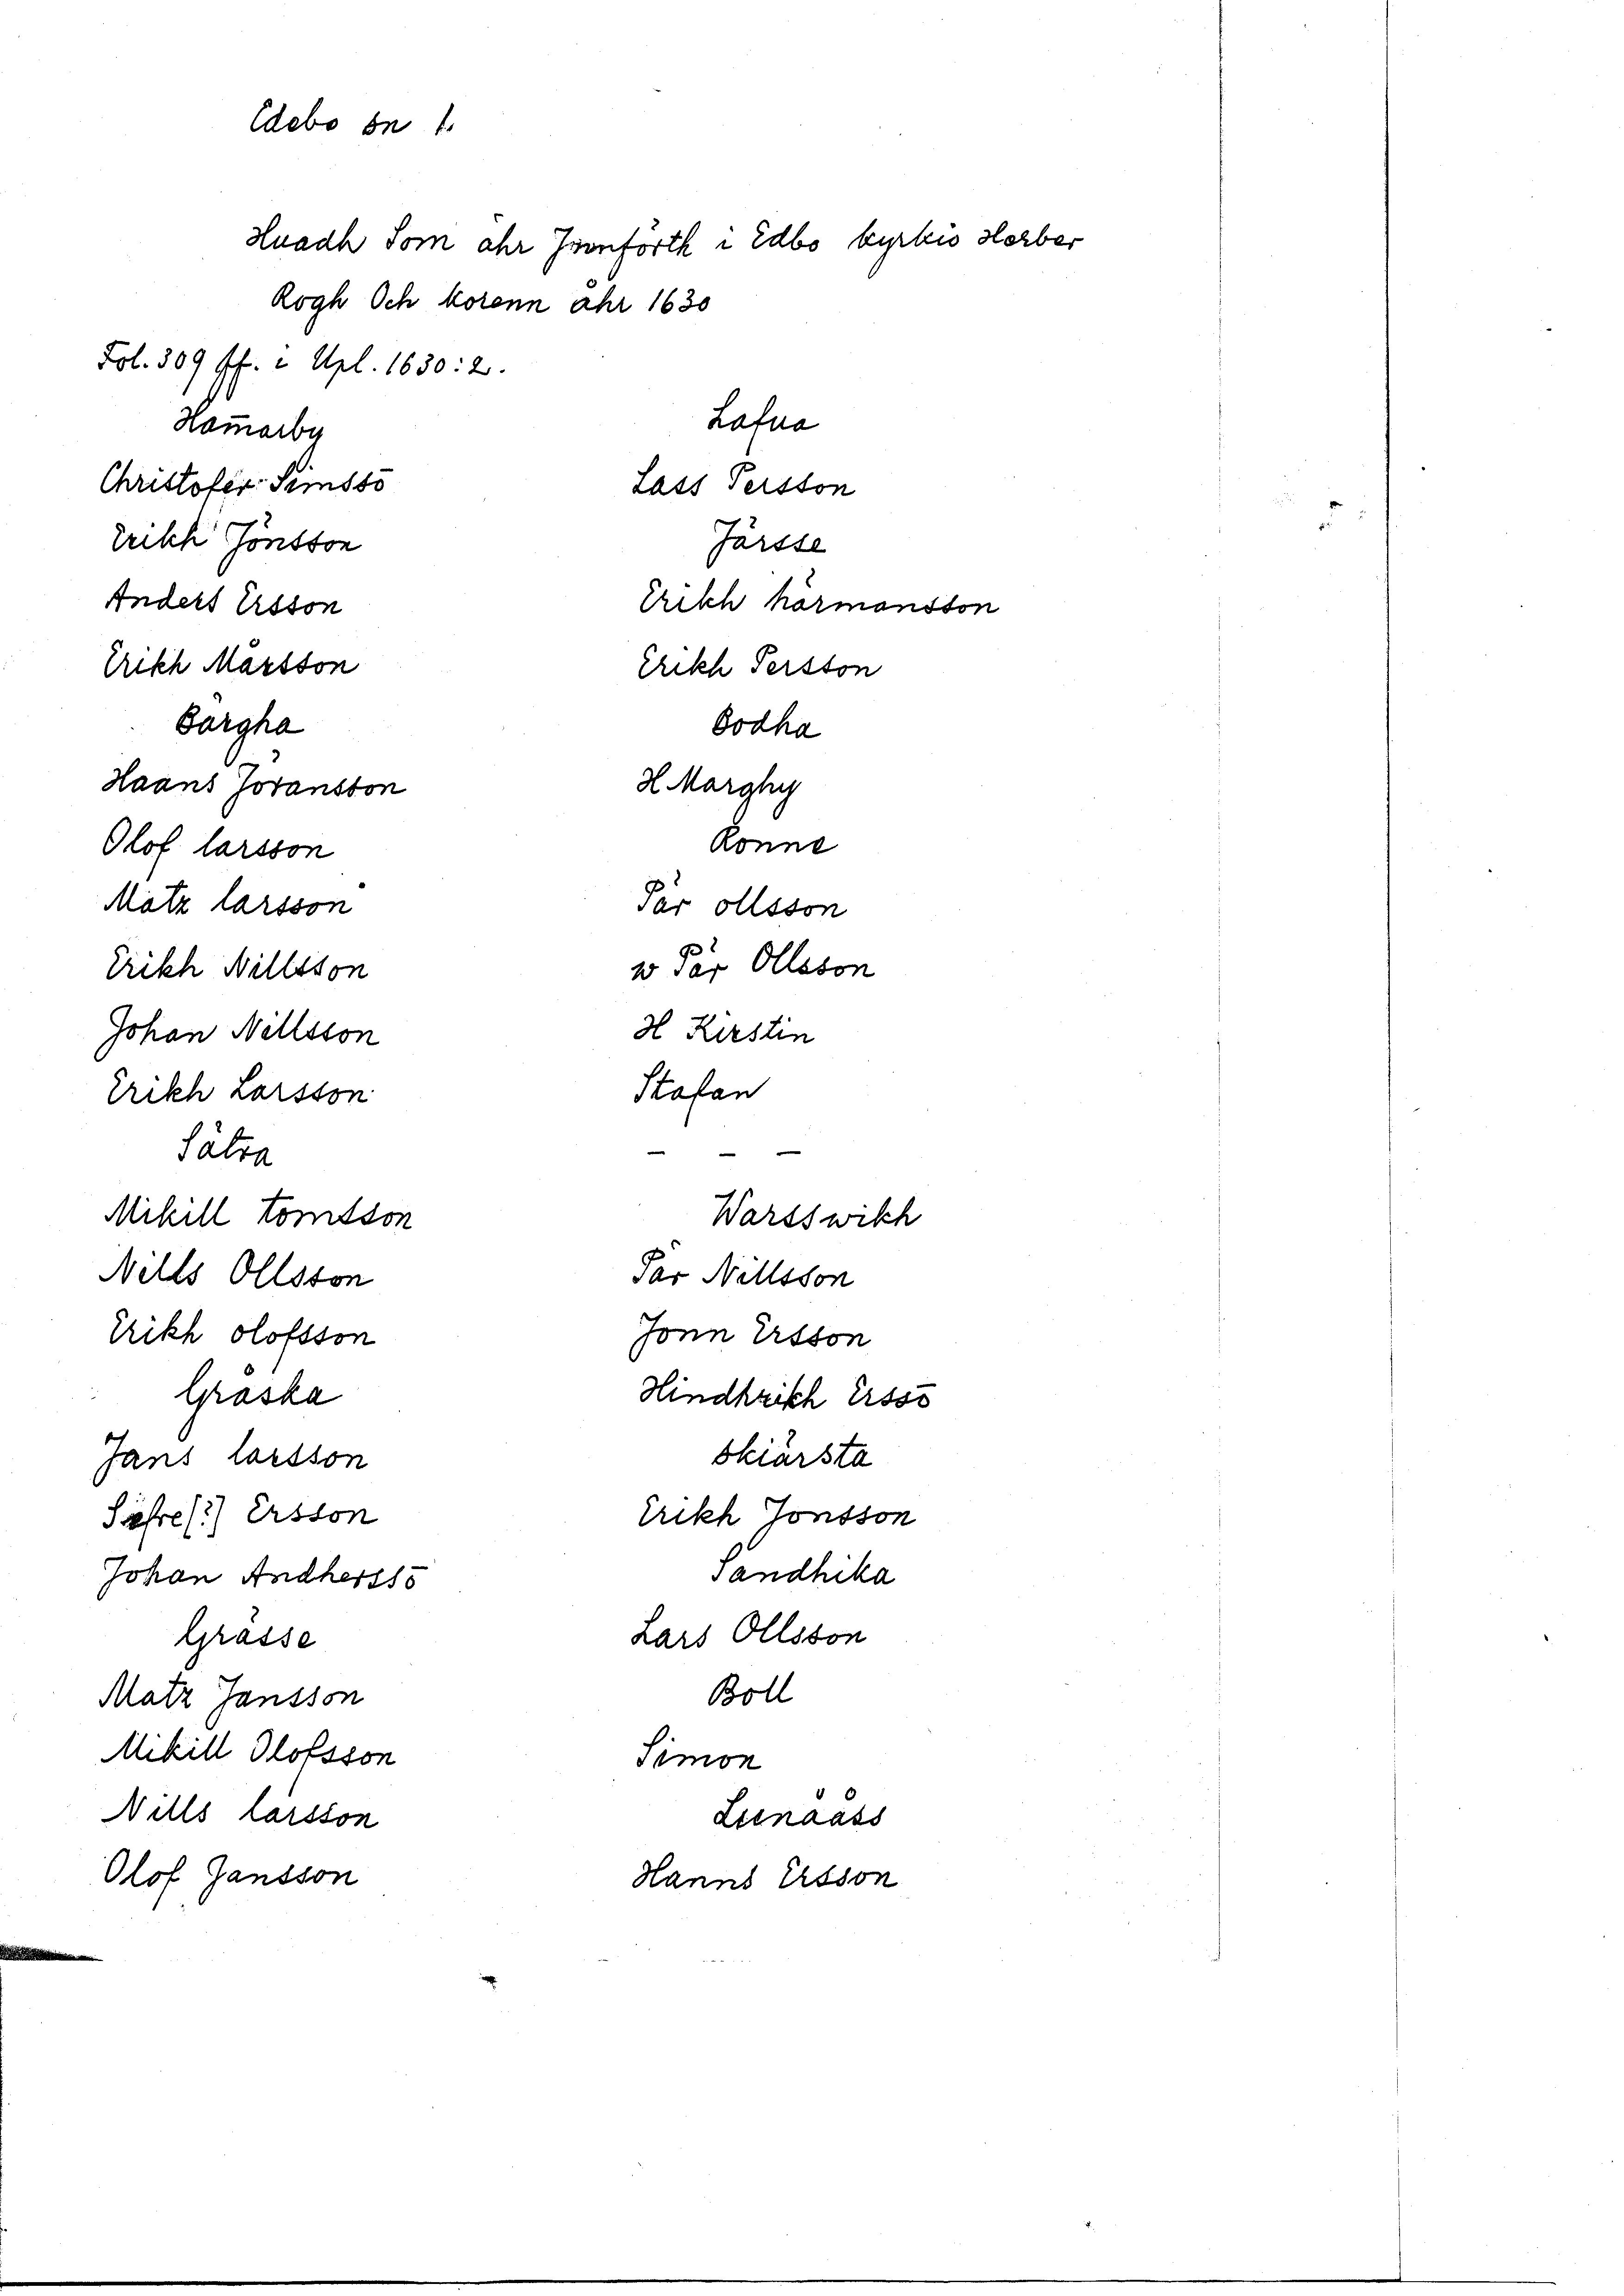 Edebo sn 1.
Huadh Som ähr Jnnförth i Edbo kyrkio Herber
Rogh Och korenn åhr 1630
Fol. 309 ff. i Upl. 1630:2.
Ham̅arby
Christofer Simssō
Erikh Jönsson
Anders Ersson
Erikh Mårsson
Bärgha
Haans Jöransson
Olof larsson
Matz larsson
Erikh Nillsson
Johan Nillsson
Erikh Larsson
Sätra
Mikill tomsson
Nills Ollsson
Erikh olofsson
Gråska
Jans larsson
Säfre(?) Ersson
Johan Andherssō
Grässe
Matz Jansson
Mikill Olofsson
Nills larsson
Olof Jansson
Lafua
Lass Persson
Järsse
Erikh härmansson
Erikh Persson
Bodha
H Marghy
Ronne
Pär ollsson
w Pär Ollsson
H Kirstin
Stafan
- - -
Warsswikh
Pär Nillsson
Jonn Ersson
Hindhrikh Erssō
skiärsta
Erikh Jonsson
Sandhika
Lars Ollsson
Boll
Simon
Lunaåss
Hanns Ersson